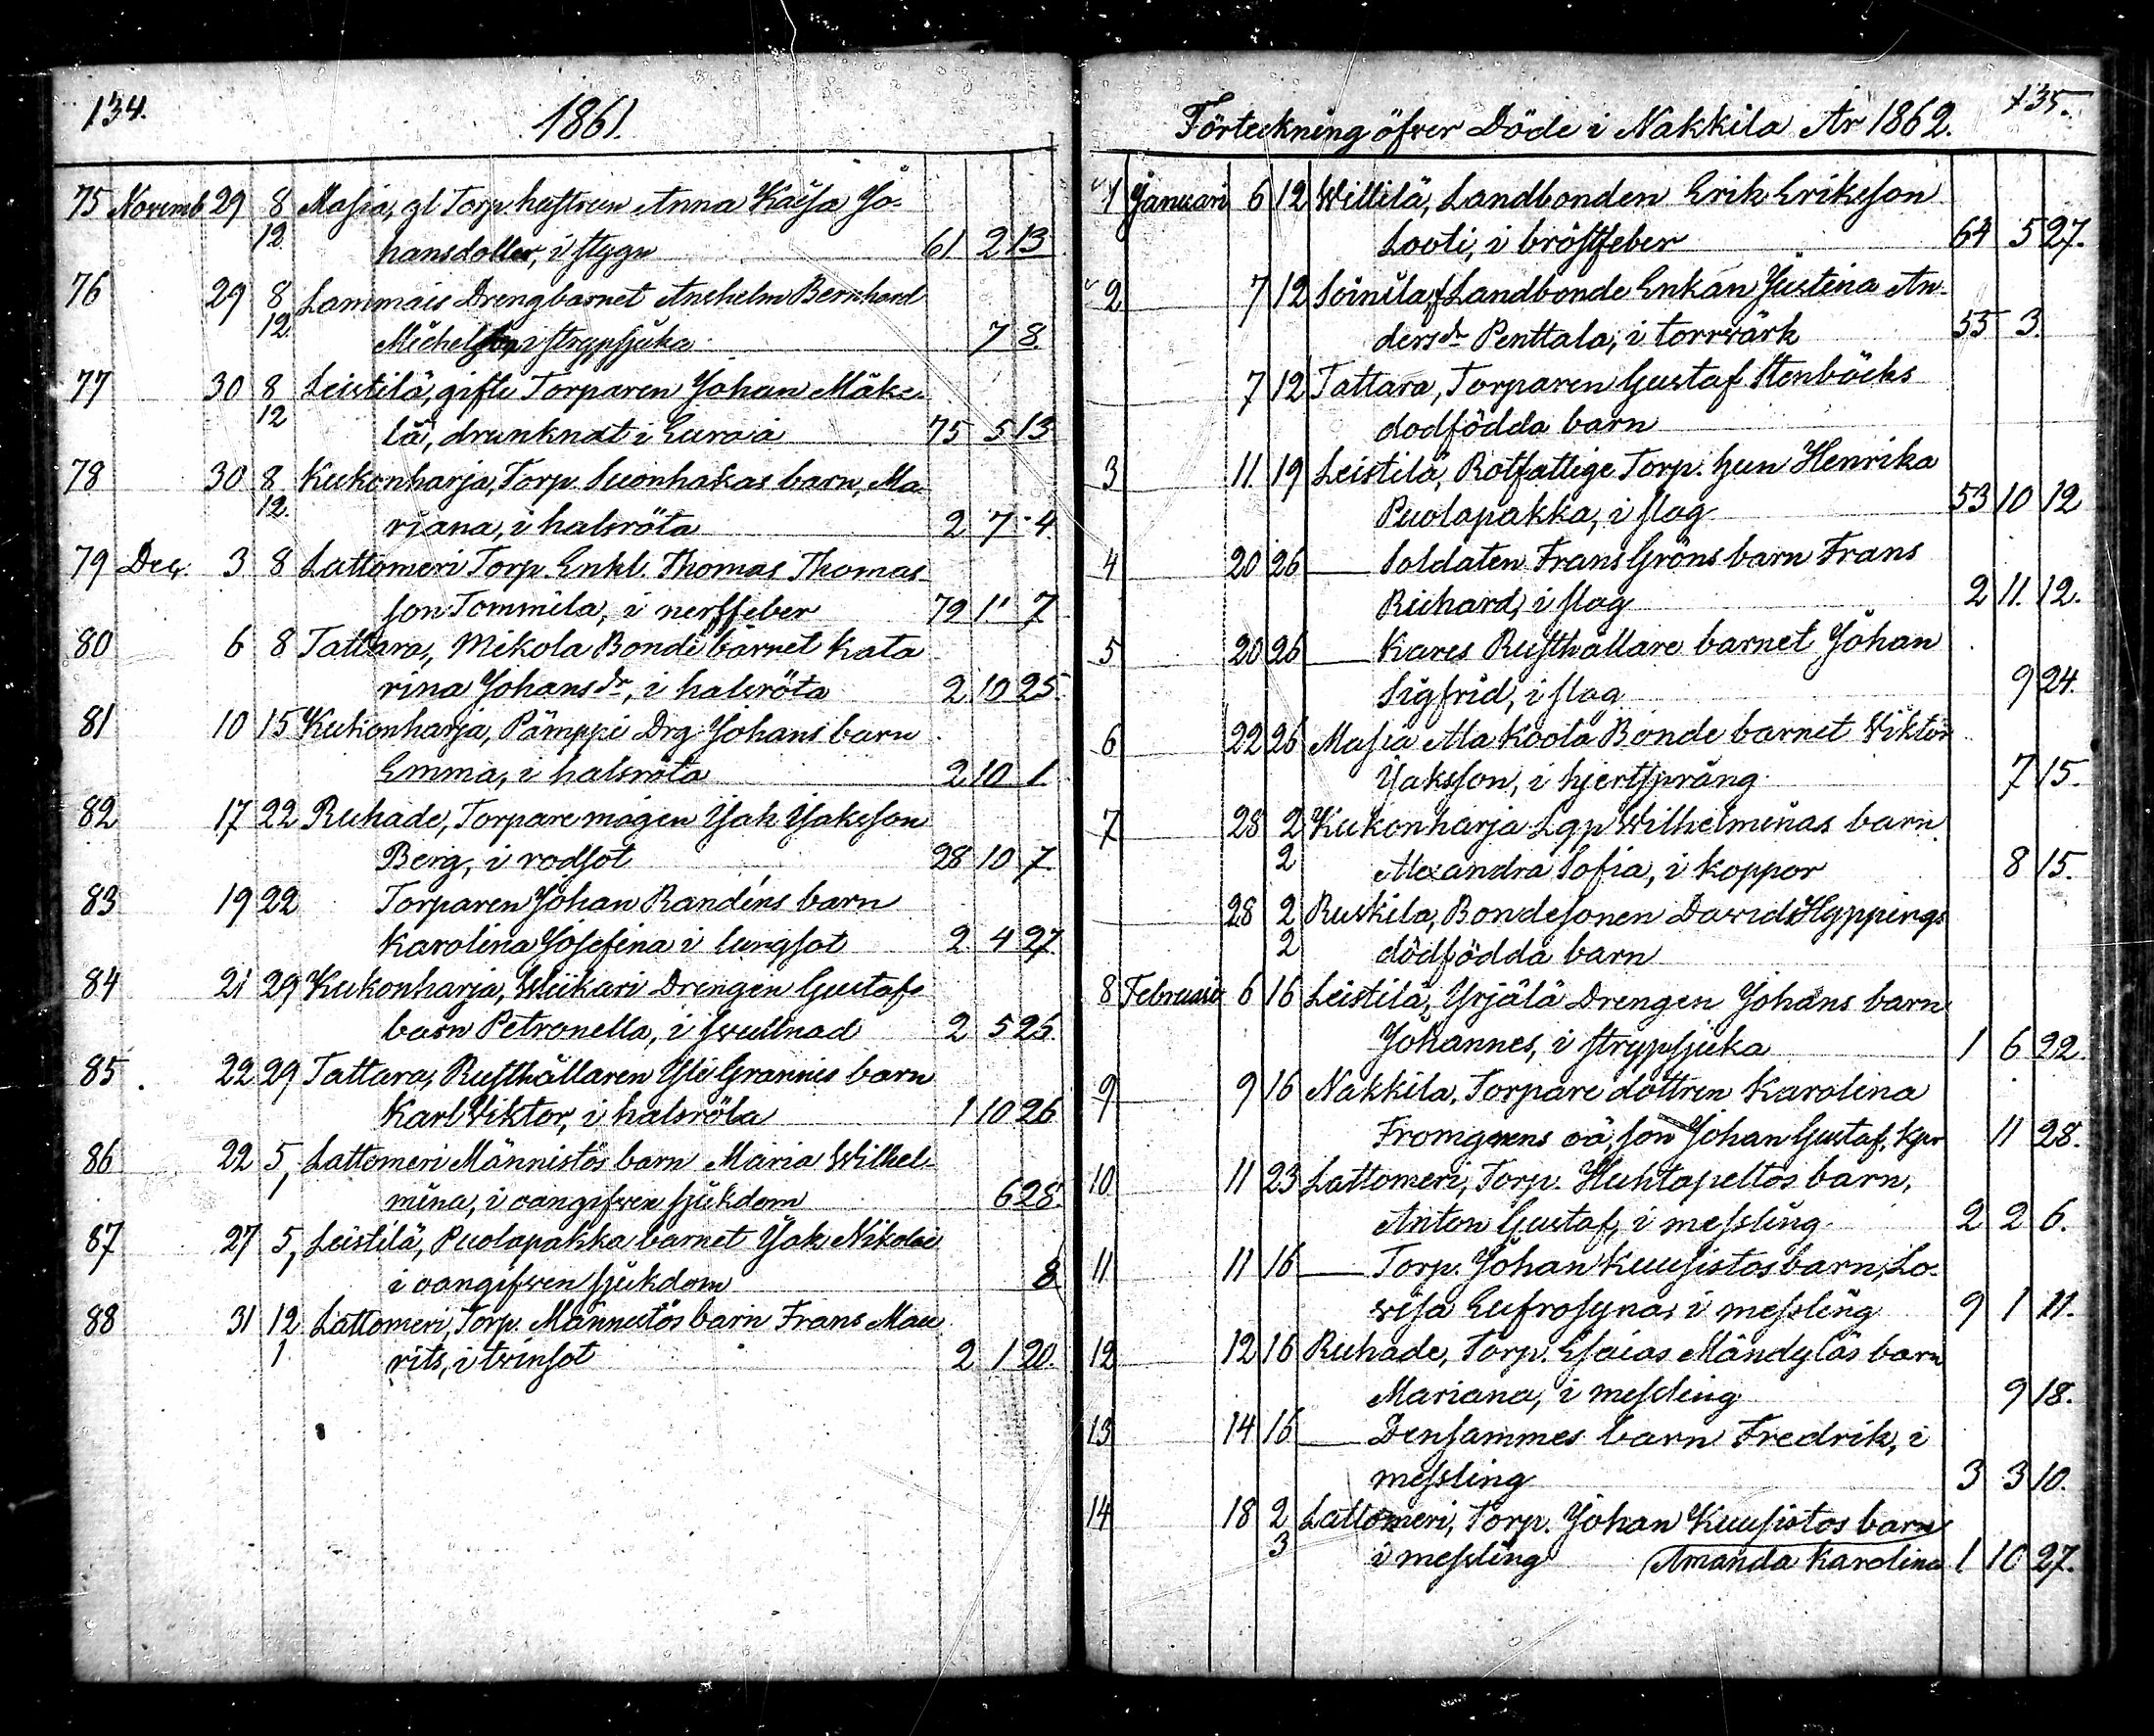 134.
1861.
75 Novemb 29 8 Masia, gl Torp. hustrun Anna Kaisa Jo-
12. hansdotter, i stygn 61 2 13
76 29 8 Lammais Drengbarnet Anshelm Bernhard
12. Michelsson i strypsjuka 7 8.
77 30 8 Leistilä, gifte Torparen Johan Mäke-
12 lä, drunknat i Eura å 75 5 13
78 30 8 Kukonharja, Torp. Suonhakas barn, Ma-
12. riana, i halsröta 2 7 4.
79 Dec. 3 8 Lattomeri Torp. Enkl. Thomas Thomas-
son Tommila, i nerffeber 79 11 7
80 6 8 Tattara, Mikola Bonde barnet Kata
rina Johans dr, i halsröta 2 10 25.
81 10 15 Kukonharja, Pämppi Drg Johans barn
Emma, i halsröta 2 10 1
82 17 22 Ruhade, Torpare mågen Isak Isaksson
Berg, i rodsot 28 10 7.
83 19 22 Torparen Johan Randéns barn
Karolina Josefina i lungsot 2 4 27
84 21 29 Kukonharja, Wiikari Drengen Gustafs
barn Petronella, i svullnad 2 5 25.
85 22 29 Tattara, Rusthållaren Yli Grannis barn
Karl Viktor, i halsröta 1 10 26
86 22 5 Lattomeri Männistös barn Maria Wilhel-
1 mina, i oangifven sjukdom 6 28.
87 27 5 Leistilä, Puolapakka barnet Isak Nikolai
1 i oangifven sjukdom 8
88 31 12 Lattomeri, Torp. Männistös barn Frans Mau
1 rits, i tvinsot 2 1 20.
135.
Förteckning öfver Döde i Nakkila År 1862.
1 Januari 6 12 Willilä, Landbonden Erik Eriksson
Looti, i bröstfeber 64 5 27.
2 7 12 Soinila, f Landbonde Enkan Justina An-
ders dr Penttala, i torrvärk 55 3.
7 12 Tattara, Torparen Gustaf Stenböcks
dodfödda barn
3 11. 19 Leistilä, Rotfattige Torp. hun Henrika
Puolapakka, i slag 53 10 12
4 20 26 — Soldaten Frans Gröns barn Frans
Richard, i slag 2 11. 12.
5 20 26 — Kares Rusthållare barnet Johan
Sigfrid, i slag 9 24.
6 22 26 Masia Ala Koota Bonde barnet Viktor
Isaksson, i hjertsprång 7 15.
7 28 2 Kukonharja Lgp Wilhelminas barn
2 Alexandra Sofia, i koppor 8 15.
28 2 Ruskila, Bondesonen David Hyppings
2 dödfödda barn
8 Februari 6 16 Leistilä, Yrjälä Drengen Johans barn
Johannes, i strypsjuka 1 6 22
9 9 16 Nakkila, Torpare dottren Karolina
oä, son Johan Gustaf, 11 28.
10 11 23 Lattomeri, Torp. Huhtapeltos barn,
Anton Gustaf, i messling 2 2 6.
11 11 16 — Torp. Johan Kuusistos barn, Lo-
visa Eufrosyna, i messling 9 1 11.
12 12 16 Ruhade, Torp. Esaias Mändyläs barn
Mariana, i messling 9 18.
13 14 16 — Densammes barn Fredrik, i
messling 3 3 10.
14 18 2 Lattomeri, Torp. Johan Kuusistos barn
3 i messling Amanda Karolina 1 10 27.